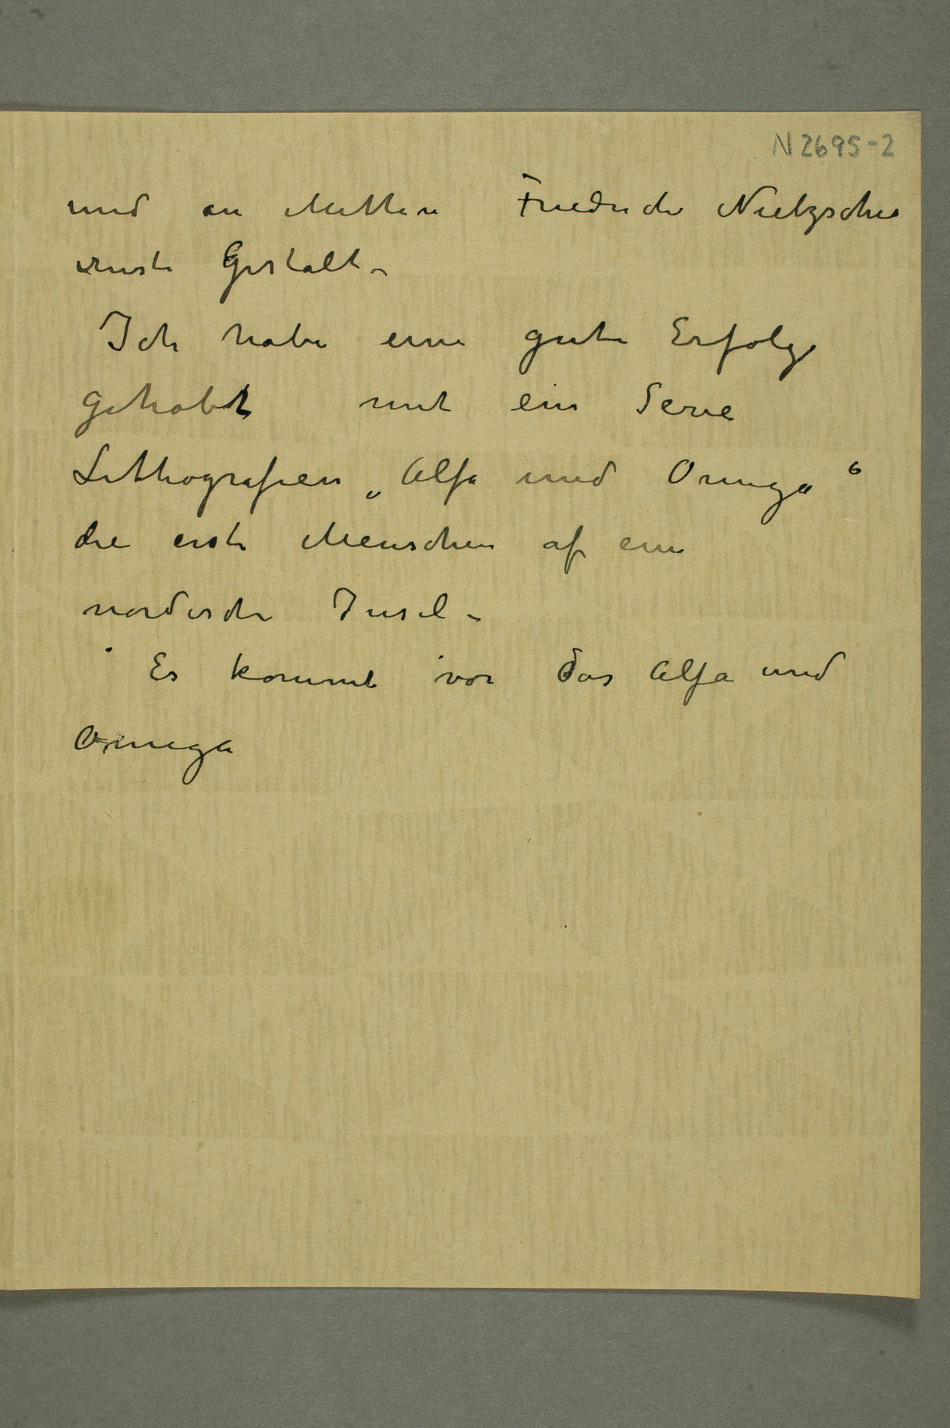 N 2695-2
und an Mitten Friedrich Nietzsches
ernste Gestalt –
Ich habe eine gute Erfolg
gehabt mit ein Serie
Lithografien „Alfa und Omega“
die erste Menschen af eine
nordische Insel –
Es kommt vor das Alfa und
Omega